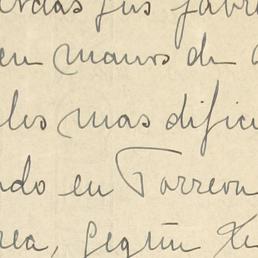 sus fabr
en manos de
les mas difici
ndo en Torreon
rea, Según